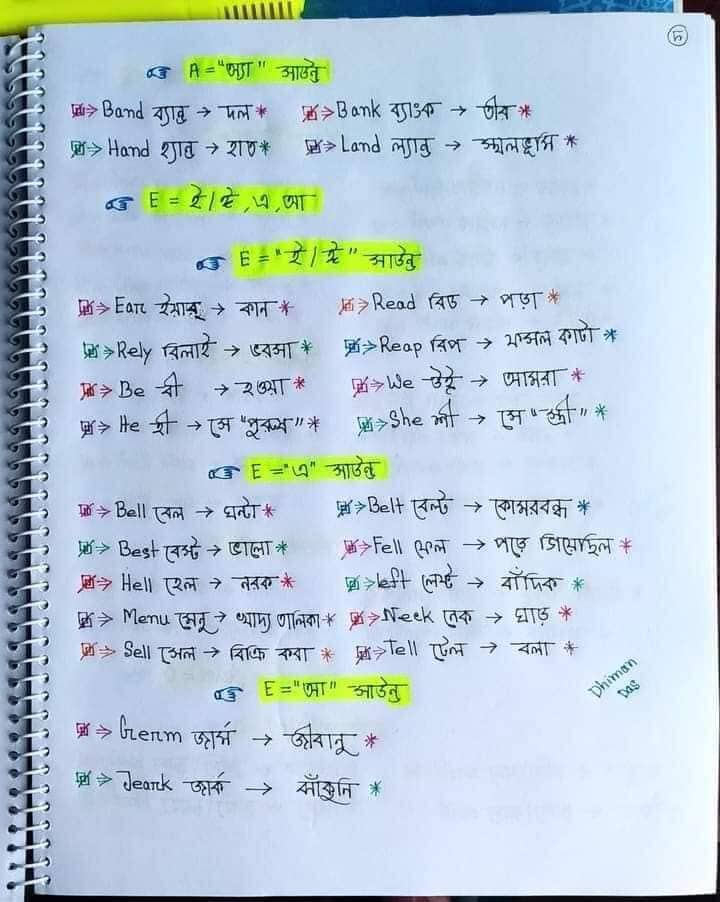 ৫
A = "অ্যা" সাউন্ড
Band ব্যান্ড → দল * Bank ব্যাঙক → তীর *
Hand হ্যান্ড → হাত * Land ল্যান্ড → স্থলভূমি *
E = ই / ঈ, এ, আ
E = "ই / ঈ" সাউন্ড
Ear ইয়ার → কান * Read রিড → পড়া *
Rely রিলাই → ভরসা * Reap রিপ → ফসল কাটা *
Be বী → হওয়া * We উই → আমরা *
He হী → সে "পুরুষ" * She শী → সে "স্ত্রী" *
E = "এ" সাউন্ড
Bell বেল → ঘন্টা * Belt বেল্ট → কোমরবন্ধ *
Best বেস্ট → ভালো * Fell ফেল → পড়ে গিয়েছিল *
Hell হেল → নরক * left লেফ্ট → বাঁদিক *
Menu মেনু → খাদ্য তালিকা * Neck নেক → ঘাড় *
Sell সেল → বিক্রি করা * Tell টেল → বলা *
E = "আ" সাউন্ড
Dhiman
Das
Germ জার্ম → জীবানু *
Jeark জার্ক → ঝাঁকুনি *